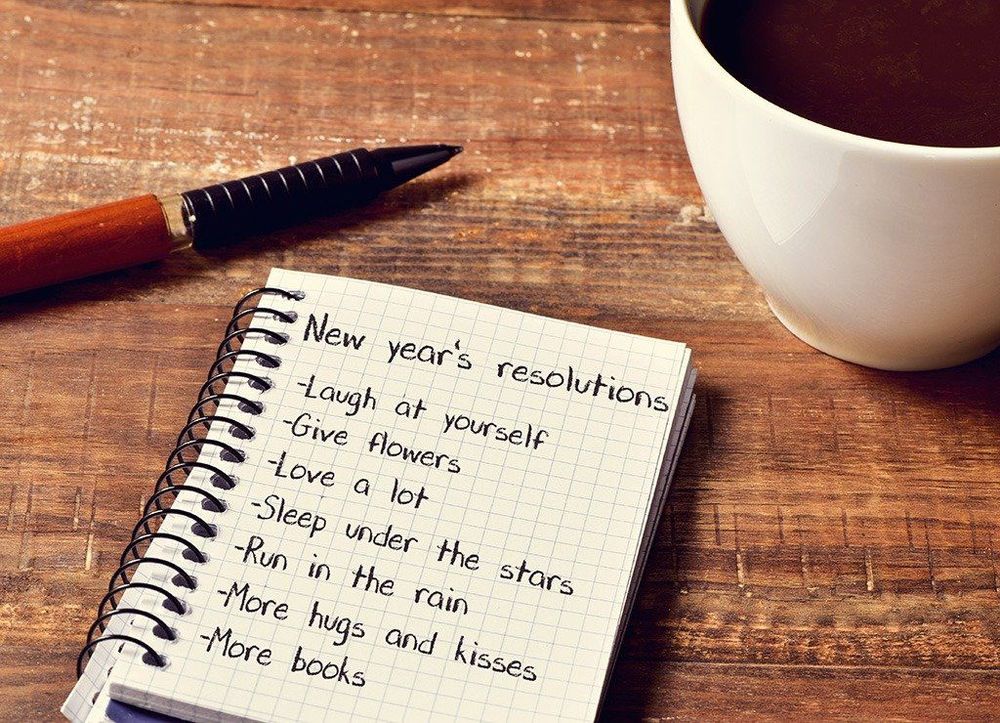 New year's resolutions
-Laugh at yourself
-Give flowers
-Love a lot
-Sleep under the stars
-Run in the rain
-More hugs and kisses
-More books